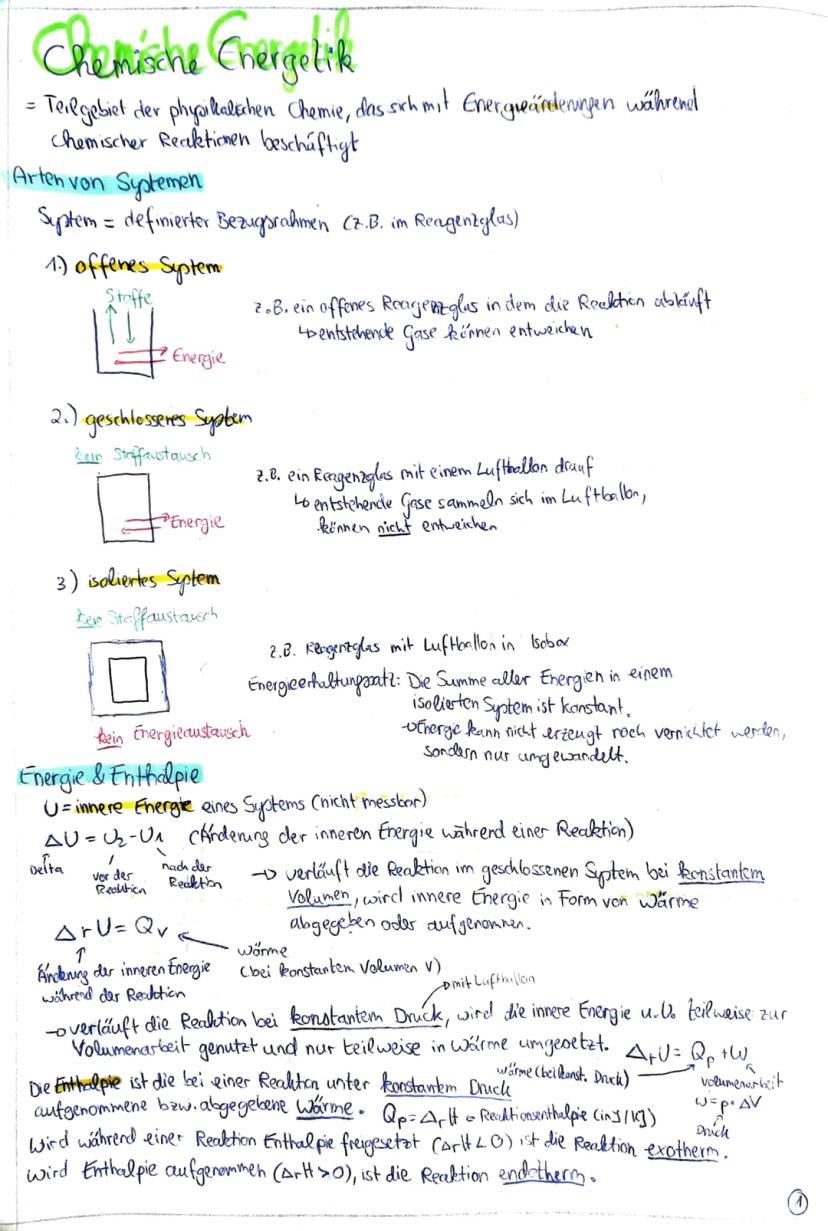 Chemische Energetik
= Teilgebiet der physikalischen Chemie, das sich mit Energieänderungen während
chemischer Reaktionen beschäftigt
Arten von Systemen
System = definierter Bezugsrahmen (z.B. im Reagenzglas)
1.) offenes System
Stoffe
Energie
z.B. ein offenes Reagenzglas in dem die Reaktion abläuft
↳ entstehende Gase können entweichen
2.) geschlossenes System
kein Stoffaustausch
Energie
z.B. ein Reagenzglas mit einem Luftballon drauf
↳ entstehende Gase sammeln sich im Luftballon,
können nicht entweichen
3) isoliertes System
kein Stoffaustausch
kein Energieaustausch
z.B. Reagenzglas mit Luftballon in Isobox
Energieerhaltungssatz: Die Summe aller Energien in einem
isolierten System ist konstant.
→ Energie kann nicht erzeugt noch vernichtet werden,
sondern nur umgewandelt.
Energie & Enthalpie
U = innere Energie eines Systems (nicht messbar)
ΔU = U2 - U1 (Änderung der inneren Energie während einer Reaktion)
Delta
vor der
Reaktion
nach der
Reaktion
→ verläuft die Reaktion im geschlossenen System bei konstantem
Volumen, wird innere Energie in Form von Wärme
abgegeben oder aufgenommen.
ΔrU = Qv
Änderung der inneren Energie
während der Reaktion
Wärme
(bei konstantem Volumen V)
→ mit Luftballon
→ verläuft die Reaktion bei konstantem Druck, wird die innere Energie u.U. teilweise zur
Volumenarbeit genutzt und nur teilweise in Wärme umgesetzt.
ΔrU = Qp + W
Wärme (bei konst. Druck)
Volumenarbeit
W = p · ΔV
Druck
Die Enthalpie ist die bei einer Reaktion unter konstantem Druck
aufgenommene bzw. abgegebene Wärme. Qp = ΔrH → Reaktionsenthalpie (in J/KJ)
Wird während einer Reaktion Enthalpie freigesetzt (ΔrH < 0) ist die Reaktion exotherm.
Wird Enthalpie aufgenommen (ΔrH > 0), ist die Reaktion endotherm.
1